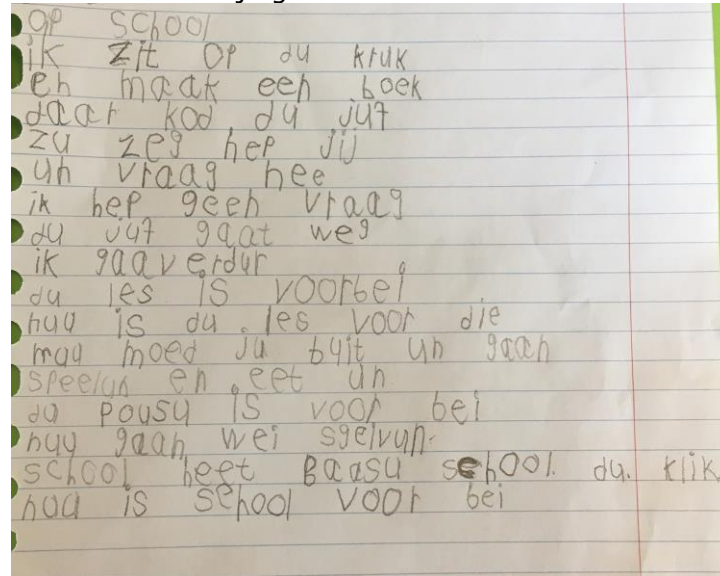 op school
ik zit op du kruk
en maak een boek
daar kod du juf
zu zeg hep jij
un vraag nee
ik hep geen vraag
du juf gaat weg
ik gaa verdur
du les is voorbei
nuu is du les voor die
muu moed ju buit un gaan
speelun en eet un
du pousu is voor bei
nuu gaan wei sgeivun.
school heet Baasu school. du. klik
nuu is school voor bei